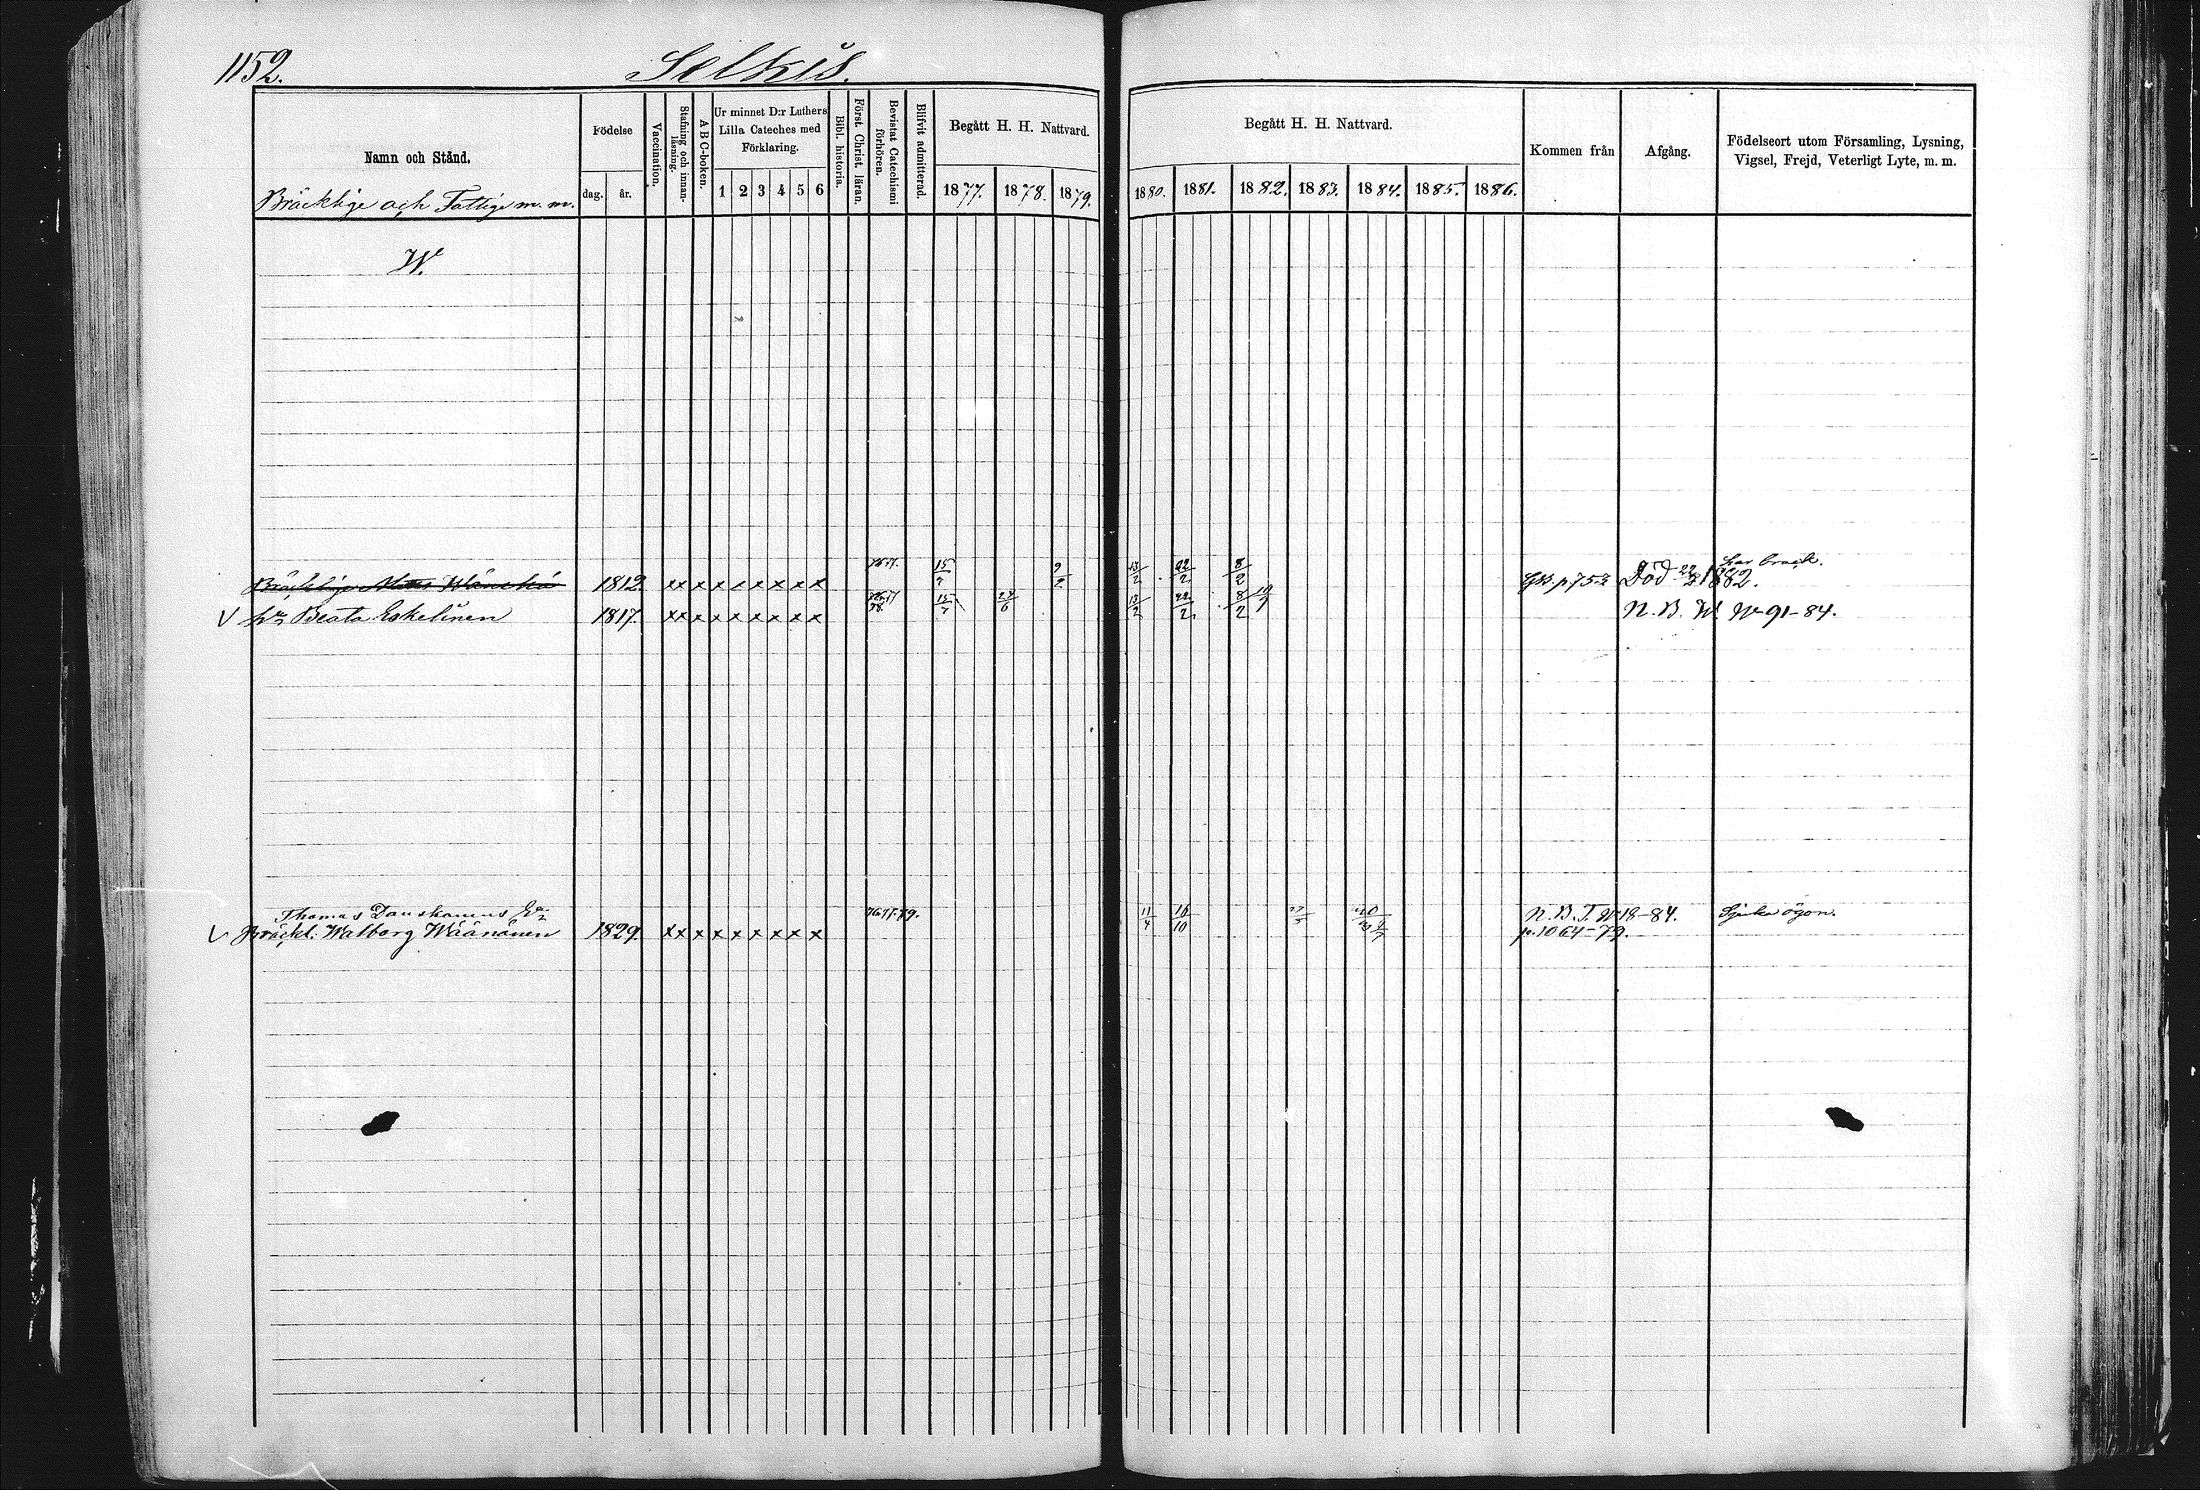 1152.
Selkis.
Namn och Stånd.
Bräcklige och Fattige m. m.
Födelse
dag. år.
Vaccination.
Stafning och innanläsning.
A B C-boken.
Ur minnet D:r Luthers
Lilla Cateches med
Förklaring.
1 2 3 4 5 6
Bibl. historia.
Först. Christ. läran.
Bevistat Catechismi förhören.
Blifvit admitterad.
Begått H. H. Nattvard.
1877. 1878. 1879.
Begått H. H. Nattvard.
1880. 1881. 1882. 1883. 1884. 1885. 1886.
Kommen från
Afgång.
Födelseort utom Församling, Lysning,
Vigsel, Frejd, Veterligt Lyte, m. m.
W.
har brack.
Bräcklige 1812. xx x x x x x x x 15/7 9/2 13/2 22/2 8/2 p 753 Död 22/2 1882.
V Beata Eskelinen 1817. xx x x x x x x x 15/7 13/2 22/2 8/2 N. B. W. No 91-84.
Thomas 76.77.79. 11/4 16/10 N. B. T. No 18-84. Sjuka ögon.
V Bräckl. Walborg Wäänänen 1829. xx x x x x x x x p. 1064-79.